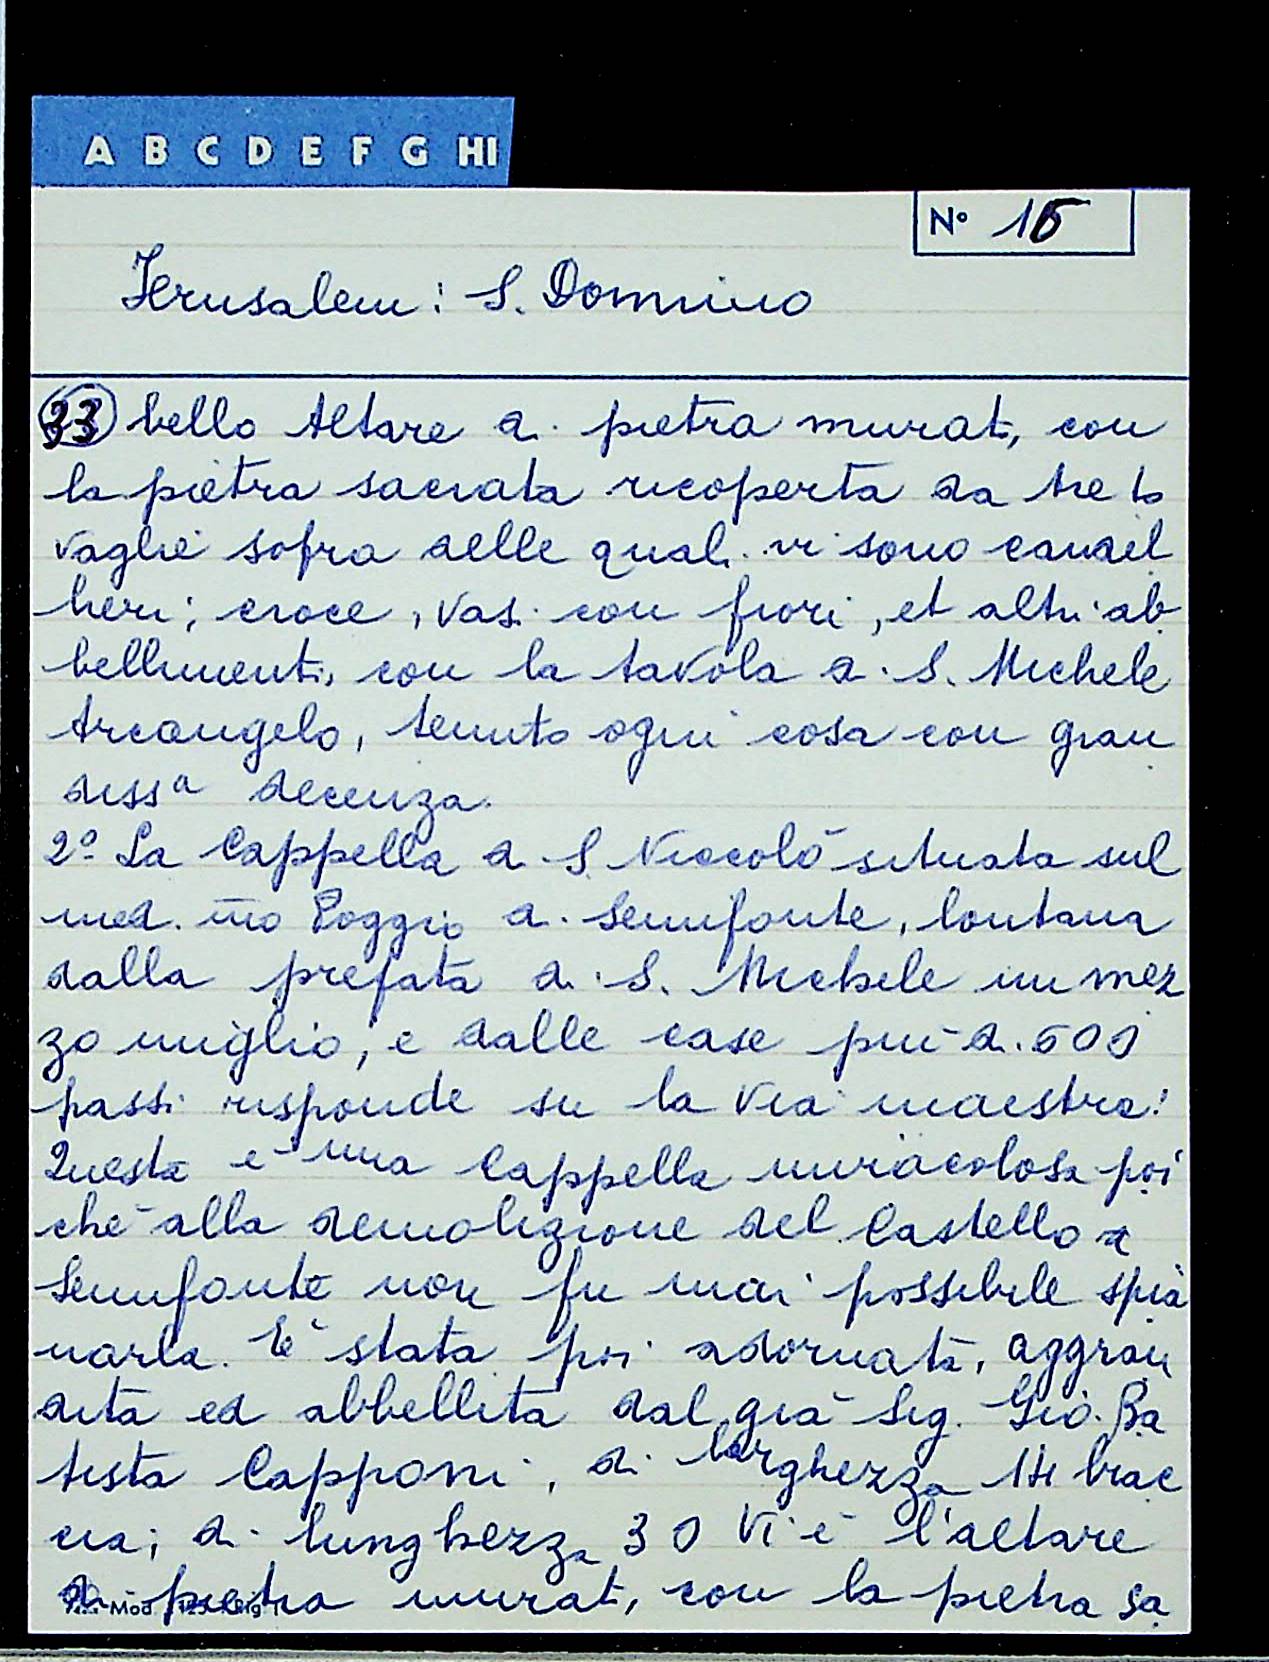 A B C D E F G HI
N° 15
Jerusalem: S. Donnino
33 bello Altare di pietra murat, con
la pietra sacrata ricoperta da tre to
vaglie sopra delle quali vi sono candel
lieri; croce, vasi con fiori, et altri ab
bellimenti, con la tavola di S. Michele
Arcangelo, tenuto ogni cosa con gran
diss.a decenza.
2° La Cappella di S. Niccolò situata sul
med. mo Poggio di Semifonte, lontana
dalla prefata di S. Michele un mez
zo miglio, e dalle case più di 600
passi risponde su la via maestra:
Questa è una Cappella miracolosa poi
chè alla demolizione del Castello di
Semifonte non fu mai possibile spia
narla. E' stata poi adornata, aggran
dita ed abbellita dal già Sig. Giò. Ba
tista Capponi, di larghezza 14 brac
cia; di lunghezza 30 Vi è l'altare
di pietra murat, con la pietra sa
Mod.